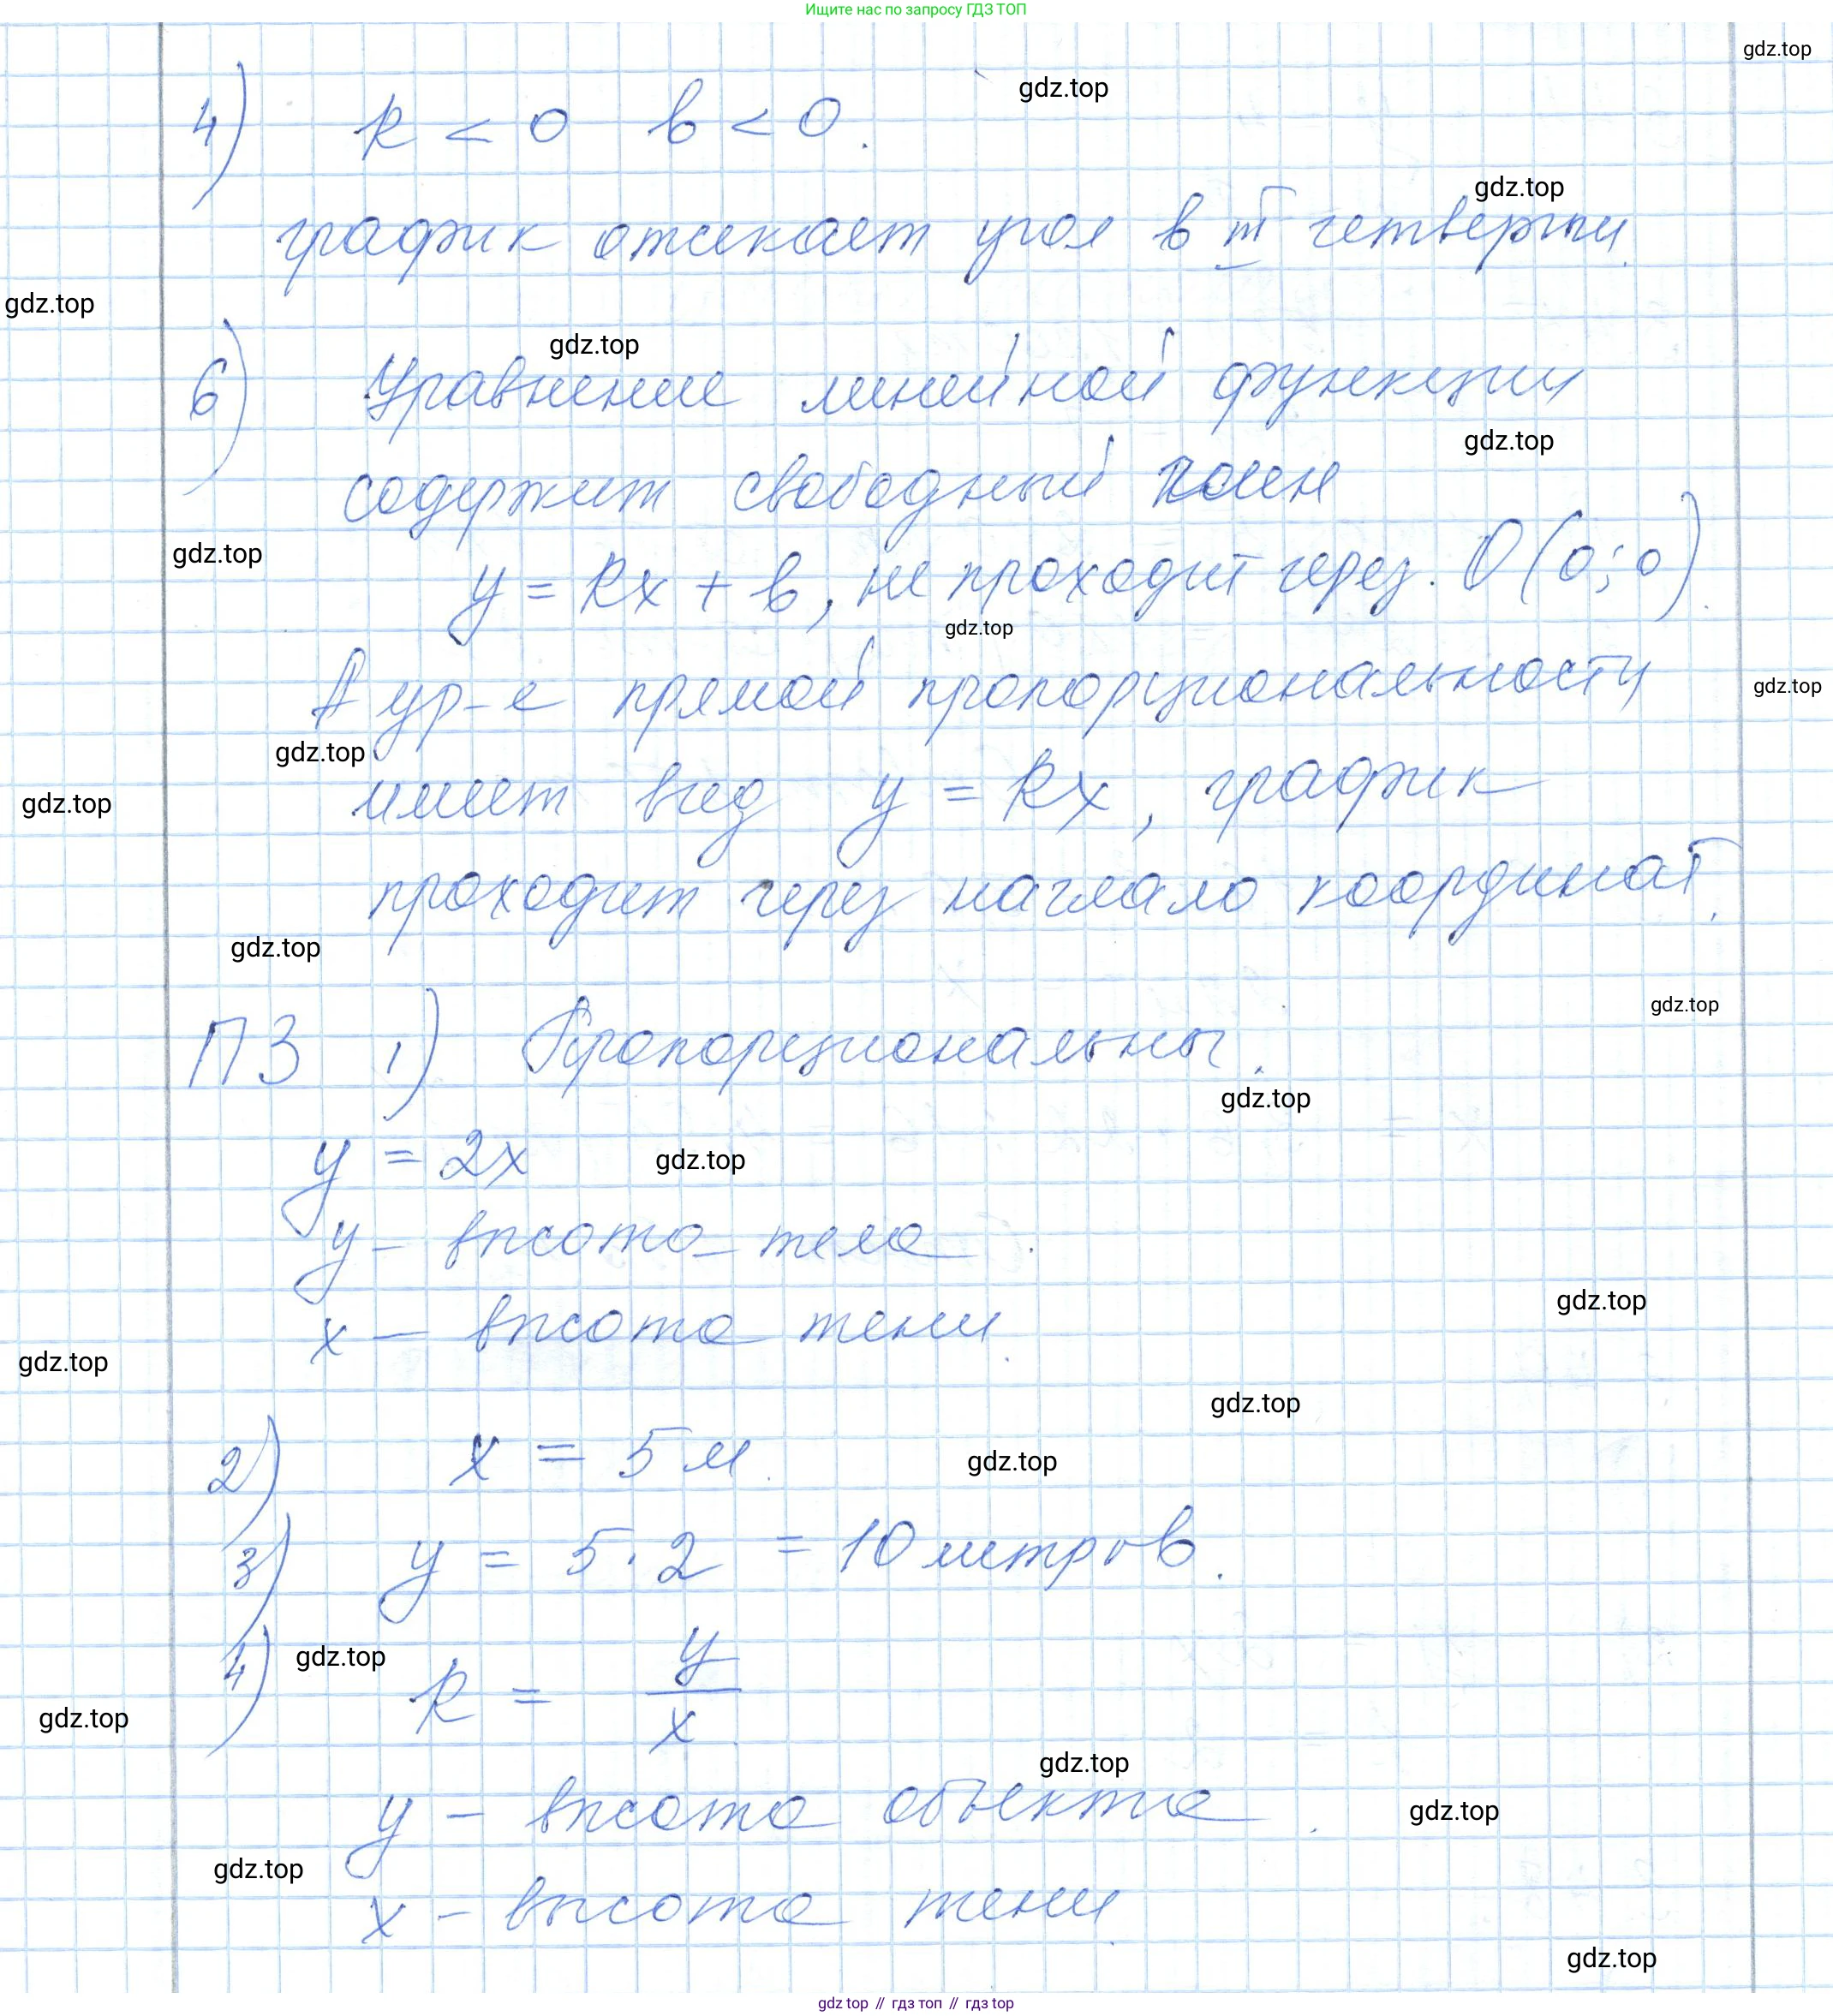 Ищите нас по запросу ГДЗ ТОП
gdz.top
gdz.top
4) k < 0 b < 0.
gdz.top
график отсекает угол в III четверти.
gdz.top
gdz.top
6) Уравнение линейной функции
gdz.top
содержит свободный член
gdz.top
y = kx + b, не проходит через. O(0;0).
gdz.top
А ур-е прямой пропорциональности
gdz.top
gdz.top
имеет вид y = kx, график
gdz.top
проходит через начлало координат.
gdz.top
gdz.top
П3 1) Пропорциональны.
gdz.top
y = 2x
gdz.top
y - высота тела.
gdz.top
x - высота тени.
gdz.top
gdz.top
2) x = 5 м.
gdz.top
3) y = 5 · 2 = 10 метров.
gdz.top
4) k = y/x
gdz.top
gdz.top
y - высота объекта.
gdz.top
gdz.top
x - высота тени.
gdz.top
gdz top // гдз топ // gdz top